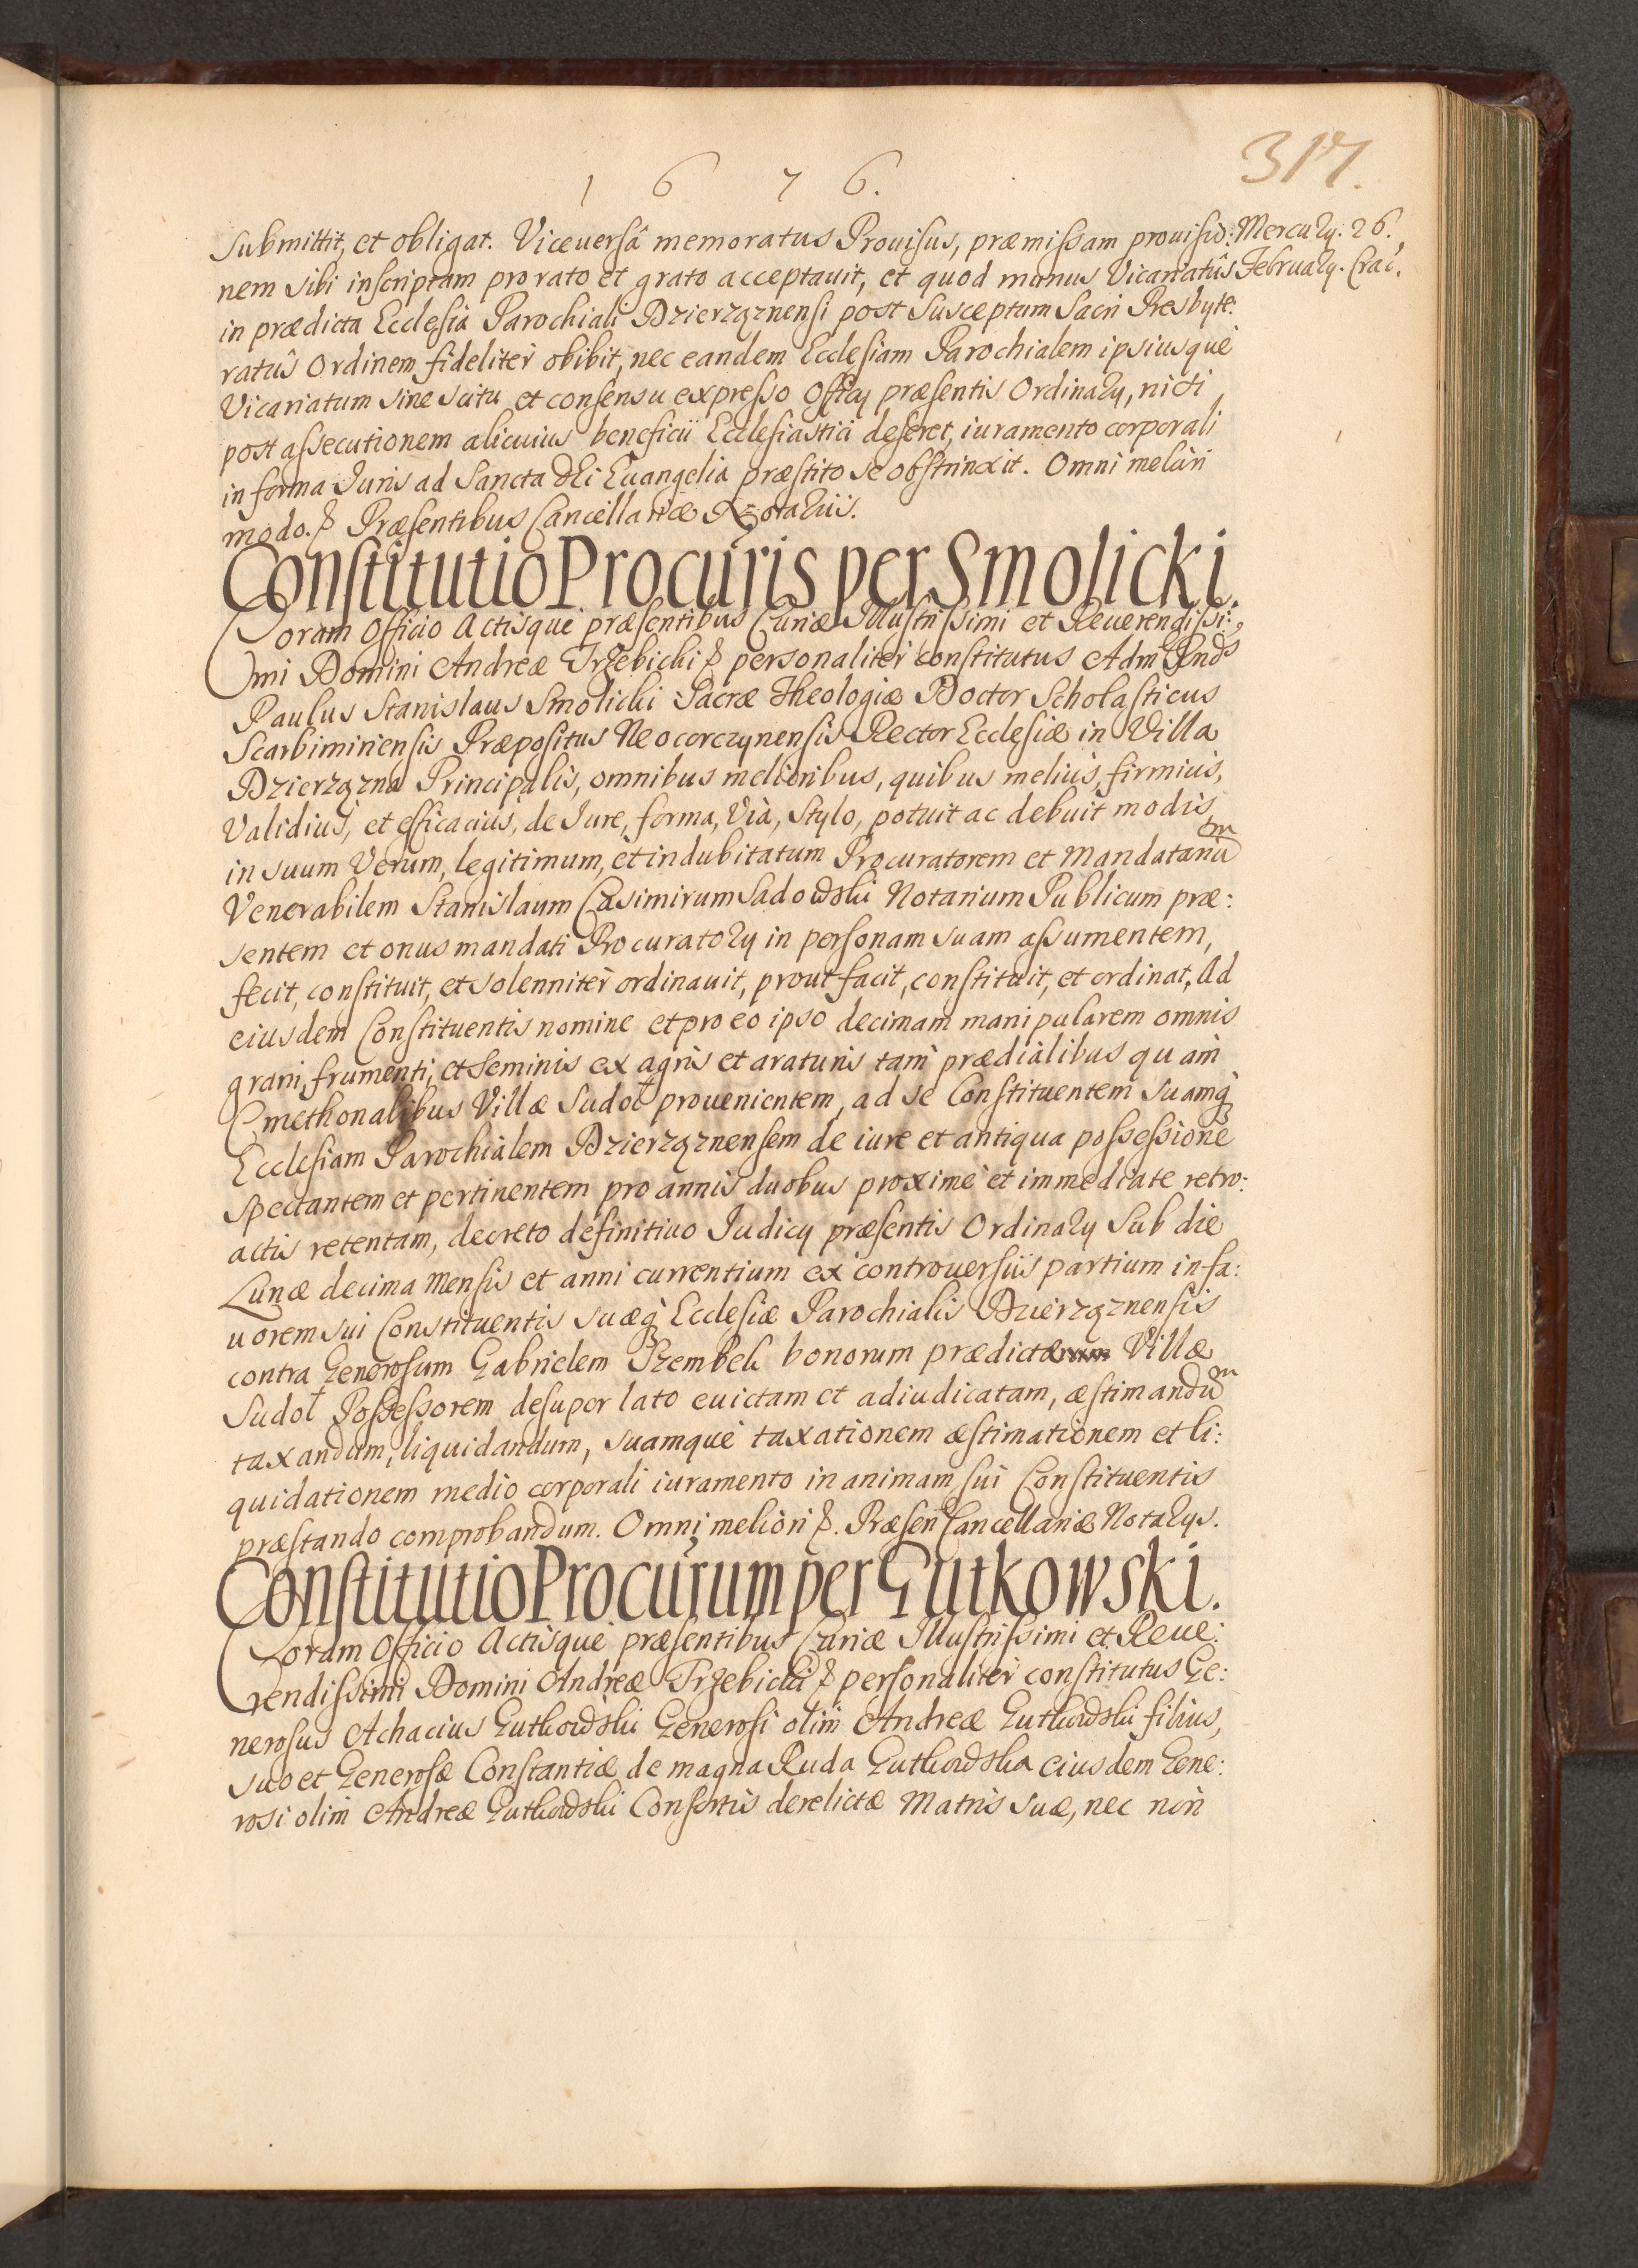 1 6 7 6.
317.
submittit, et obligat. Viceuersâ memoratus Prouisus, præmissam prouisio:
Mercurÿ. 26.
nem sibi inscriptam pro rato et grato acceptauit, et quod munus Vicariatûs
Februarÿ. Crac.
in prædicta Ecclesia Parochiali Dzierząznensi post susceptum Sacri Presbyte:
ratûs Ordinem fideliter obibit, nec eandem Ecclesiam Parochialem ipsiusque
Vicariatum sine scitu et consensu expresso Officÿ præsentis Ordinarÿ, nisi
post assecutionem alicuius beneficii Ecclesiastici deseret, iuramento corporali
in forma Juris ad Sancta Dei Euangelia præstito se obstrinxit. Omni meliori
modo. Præsentibus Cancellariæ Notariis.
Constitutio Procuris per Smolicki.
Coram Officio Actisque præsentibus Curiæ Illustrissimi et Reuerendissi:
mi Domini Andreæ Trzebicki personaliter constitutus Adm Rnds
Paulus Stanislaus Smolicki Sacræ Theologiæ Doctor Scholasticus
Scarbimiriensis Præpositus Neocorczynensis Rector Ecclesiæ in Villa
Dzierzązna Principalis, omnibus melioribus, quibus melius, firmius,
Validius, et efficacius, de Jure, forma, Via, Stylo, potuit ac debuit modis,
in suum Verum, legitimum, et indubitatum Procuratorem et Mandatariũ
Venerabilem Stanislaum Casimirum Sadowski Notarium Publicum præ:
sentem et onus mandati Procuratorÿ in personam suam assumentem,
fecit, constituit, et solenniter ordinauit, prout facit, constituit, et ordinat, Ad
eiusdem Constituentis nomine et pro eo ipso decimam manipularem omnis
grani, frumenti, et seminis ex agris et araturis tam prædialibus quam
Cmethonalibus Villæ Sudoł prouenientem, ad se Constituentem suamq̀
Ecclesiam Parochialem Dzierząznensem de iure et antiqua possessione
spectantem et pertinentem pro annis duobus proxime et immediate retro:
actis retentam, decreto definitiuo Judicÿ præsentis Ordinarÿ sub die
Lunæ decima Mensis et anni currentium ex controuersiis partium in fa:
uorem sui Constituentis suæq̀ Ecclesiæ Parochialis Dzierząznensis
contra Generosum Gabrielem Szembek bonorum prædictæ Villæ
Sudoł Possessorem desuper lato euictam et adiudicatam, æstimandũ
taxandum, liquidandum, suamque taxationem æstimationem et li:
quidationem medio corporali iuramento in animam sui Constituentis
præstando comprobandum. Omni meliori. Præsen Cancellariæ Notarÿs.
Constitutio Procurum per Gutkowski.
Coram Officio Actisque præsentibus Curiæ Illustrissimi et Reue:
rendissimi Domini Andreæ Trzebicki personaliter constitutus Ge:
nerosus Achacius Gutkowski Generosi olim Andreæ Gutkowski filius,
suo et Generosæ Constantiæ de magna Ruda Gutkowska eiusdem Gene:
rosi olim Andreæ Gutkowski Consortis derelictæ Matris suæ, nec non